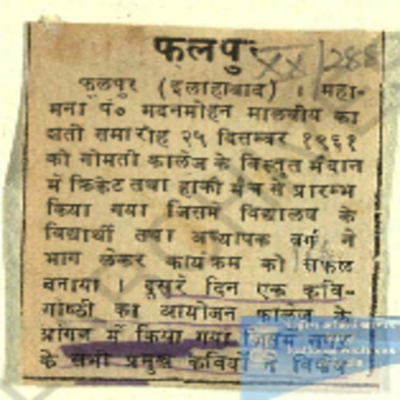 फलपुर
XX/288
फूलपुर (इलाहाबाद) । महा-
मना पं० मदनमोहन मालवीय का
शती समारोह २५ दिसम्बर १९६१
को गोमती कालेज के विस्तृत मैदान
में क्रिकेट तथा हाकी मैच से प्रारम्भ
किया गया जिसमें विद्यालय के
विद्यार्थी तथा अध्यापक वर्ग ने
भाग लेकर कार्यक्रम को सफल
बनाया । दूसरे दिन एक कवि-
गोष्ठी का आयोजन कालेज के
प्रांगन में किया गया जिसमें नगर
के सभी प्रमुख कवियों ने विशेष